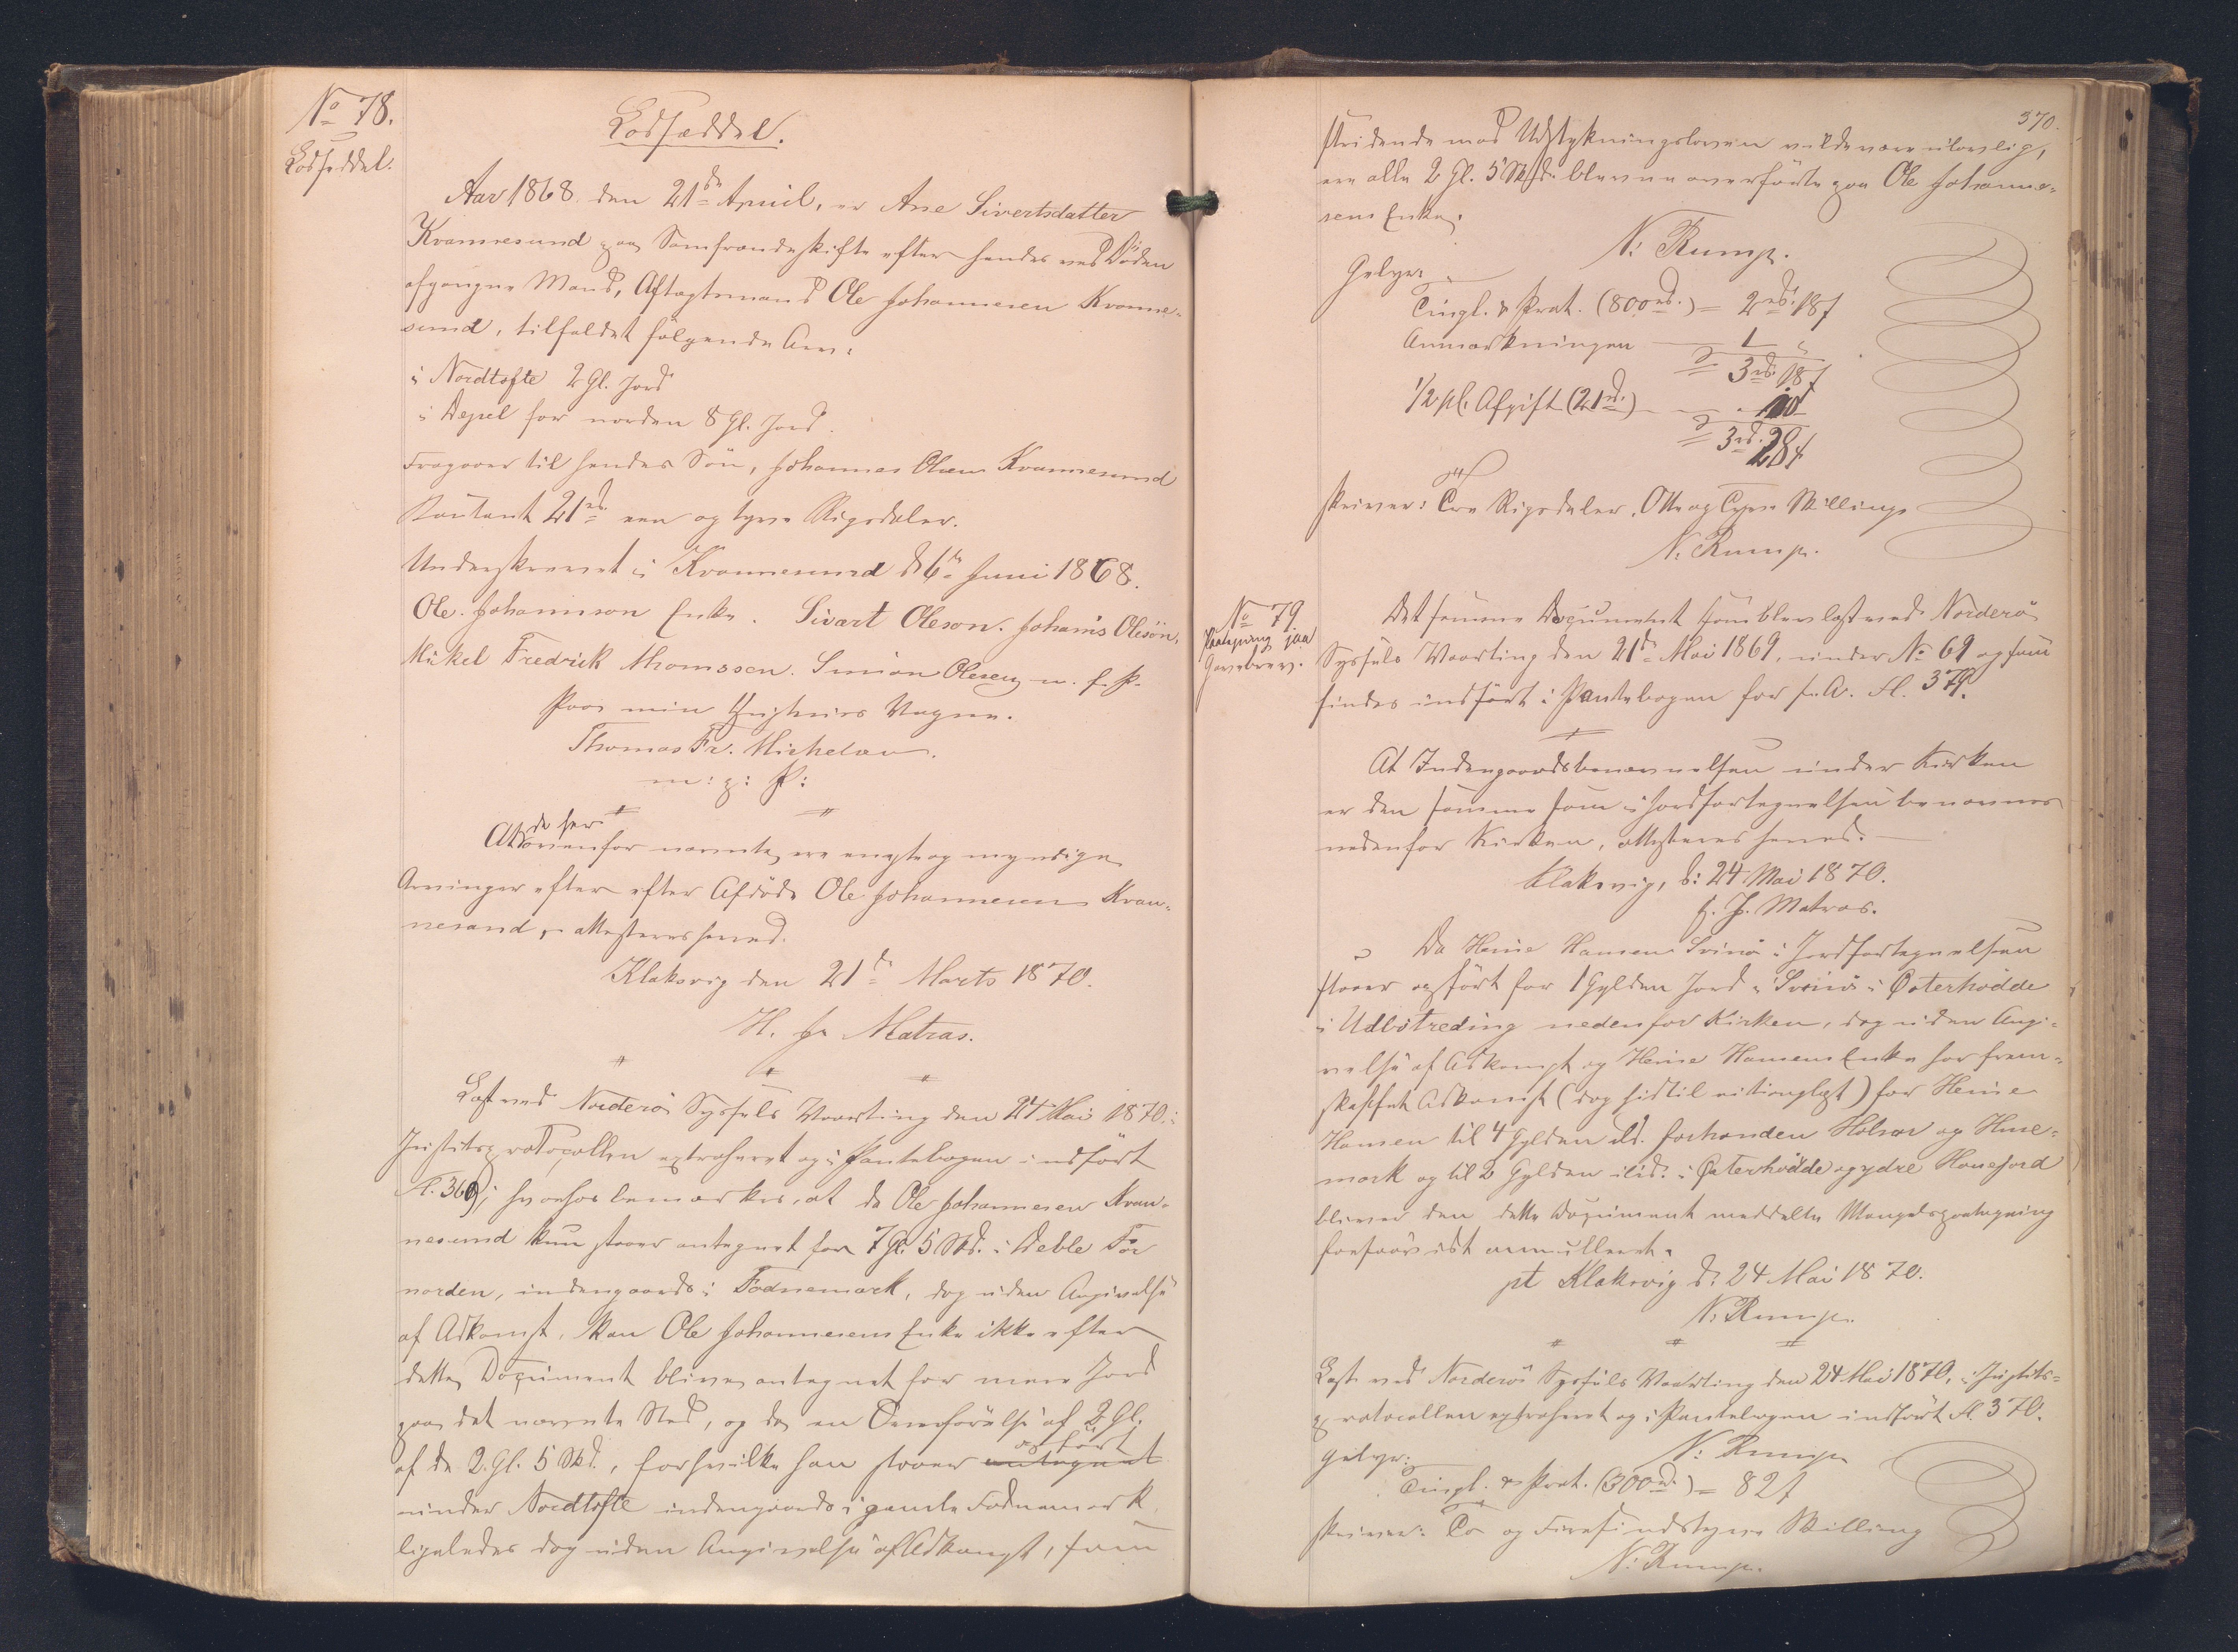 No 78.
Lodseddel.
Lodseddel.
Aar 1868. den 21de April, er Ane Sivertsdatter
Kvannesund paa Samfrændeskifte efter hendes ved Döden
afgangne Mand, Aftagtsmand Ole Johannesen Kvanne-
sund, tilfaldet fölgende Arv:
i Nordtofte 2 Gl. Jord
i Depel for norden 8 Gl. Jord.
Fragaaer til hendes Sön, Johannes Olsen Kvannesund
Contant 21rd een og tyve Rigsdaler.
Underskrevet i Kvannesund d 6te Juni 1868.
Ole Johannson Enke. Sivert Oleson. Johanis Olesön,
Mikel Fredrik Thomssen. Simon Olesen m. f. P.
Paa min Vegne.
Thomas Fr. Michelsen.
m: p: P:
At de her
ovenfor nævnte ere eneste og myndige
Arvinger efter efter Afdöde Ole Johannesen Kvan-
nesund, attesteres herved.
Klaksvig den 21de Marts 1870.
H. J. Matras.
Læst ved Norderö Syssels Vaarting den 24 Mai 1870, i
Justitsprotocollen extraheret og i Pantebogen indfört
Fl. 369; hvorhos bemærkes, at da Ole Johannesen Kvan-
nesund kun staaer antegnet for 7 Gl. 5 Skd. i Deble For
norden, indengaards i Fodnemark, dog uden Angivelse
af Adkomst, kan Ole Johannesens Enke ikke efter
dette Document blive antegnet for mere Jord
paa det nævnte Sted, og da en Overförelse af 2 Gl.
af de 2. Gl. 5 Skd., for hvilke han staaer antegnet opfört
under Nordtofte indengaards i gamle Fodnemark
ligeledes dog uden Angivelse af Adkomst, som
370.
stridende mod Udstykningsloven vilde være ulovlig,
ere alle 2 Gl. 5 Skd. blevne overförte paa Ole Johanne-
sens Enke.
N: Rump.
Gebyr:
Tingl. & Prot. (800rd.) = 2rd. 18 ſ
Anmærkningen 1 "
= 3rd. 18 ſ
1/2 pCt. Afgift (21rd.) 10
= 3rd. 28 ſ
skriver: Tre Rigsdaler, Otte og Tyve Skilling
N. Rump.
No 79
Paategning paa
Gavebrev.
Det samme Document som blev læst ved Norderö
Syssels Vaarting den 21de Mai 1869, under No 69 og som
findes indfört i Pantebogen for s. A. Fl. 379.
At Indengaardsbenævnelsen under Kirken
er den samme som i Jordfortegnelsen benævnes
nedenfor Kirken, attesteres herved.
Klaksvig, d: 24 Mai 1870.
H. J. Matras.
Da Heine Hansen Svinö i Jordfortegnelsen
staaer opfört for 1 Gylden Jord i Svinö i Østerhödde
i Udbötreding nedenfor Kirken, dog uden Angi-
velse af Adkomst og Heine Hansens Enke har frem-
skaffet Adkomst (dog hidtil utinglyst) for Heine
Hansen til 4 Gylden ild. forhanden Holsar og Huse-
mark og til 2 Gylden ibid. i Østerhödde og ydre Honejord
bliver den dette Document meddelte Mangelspaategning
forsaavidt annulleret.
pt Klaksvig d: 24 Mai 1870.
N: Rump.
Læst ved Norderös Syssels Vaarting den 24 Mai 1870, i Justits-
protocollen extraheret og i Pantebogen indfört Fl. 370.
N: Rump
Gebyr:
Tingl. & Prot. (300rd.) = 82 ſ
skriver: To og Firesindstyve Skilling
N: Rump.